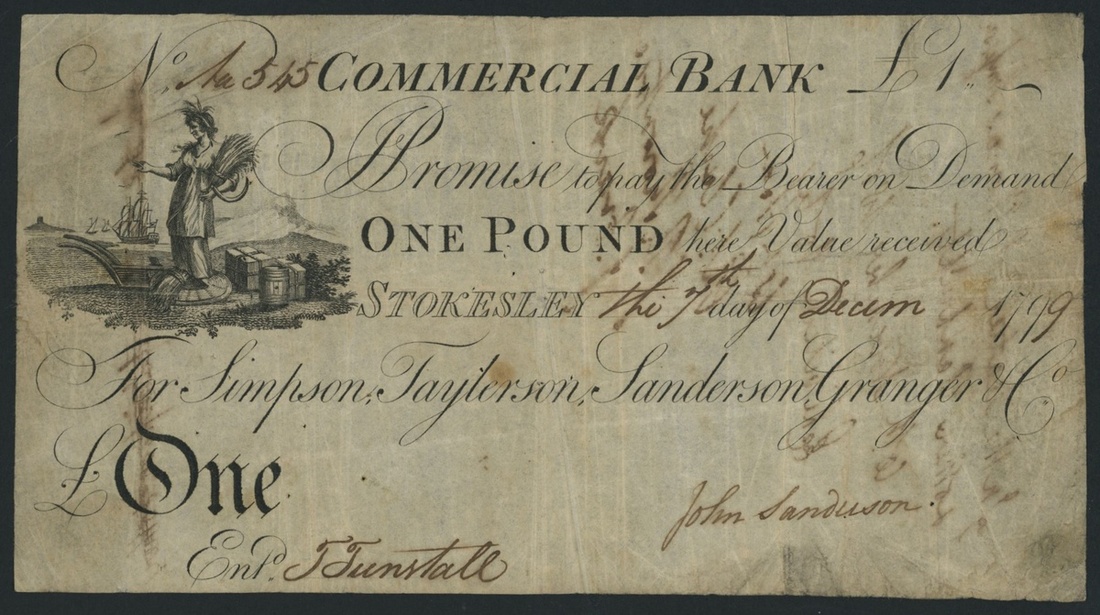 No. Aa 545 COMMERCIAL BANK £1..
I Promise to pay the Bearer on Demand
ONE POUND here, Value received
STOKESLEY the 7th day of Decem 1799
For Simpson, Taylerson, Sanderson, Granger & Co.
£ One
John Sanderson.
Entd. T Tunstall